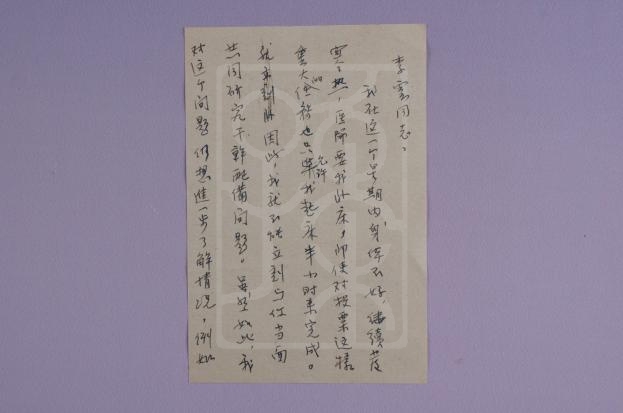 李云同志：
我在这一个星期内，身体不好，继续发
寒热，医师要我卧床，即使对投票这样
重大的任务也只准我允许起床半小时来完成。
因此，我就不能立刻与你当面
共同研究干部配备问题。虽然如此，我
对这个问题仍想进一步了解情况，例如